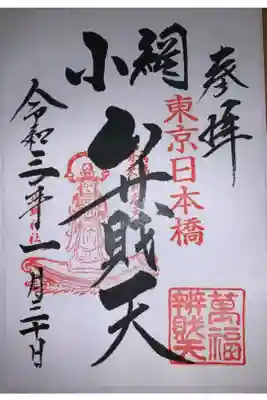 奉拝
東京日本橋
小網
弁財天
令和三年一月二十日
萬福
辨財天